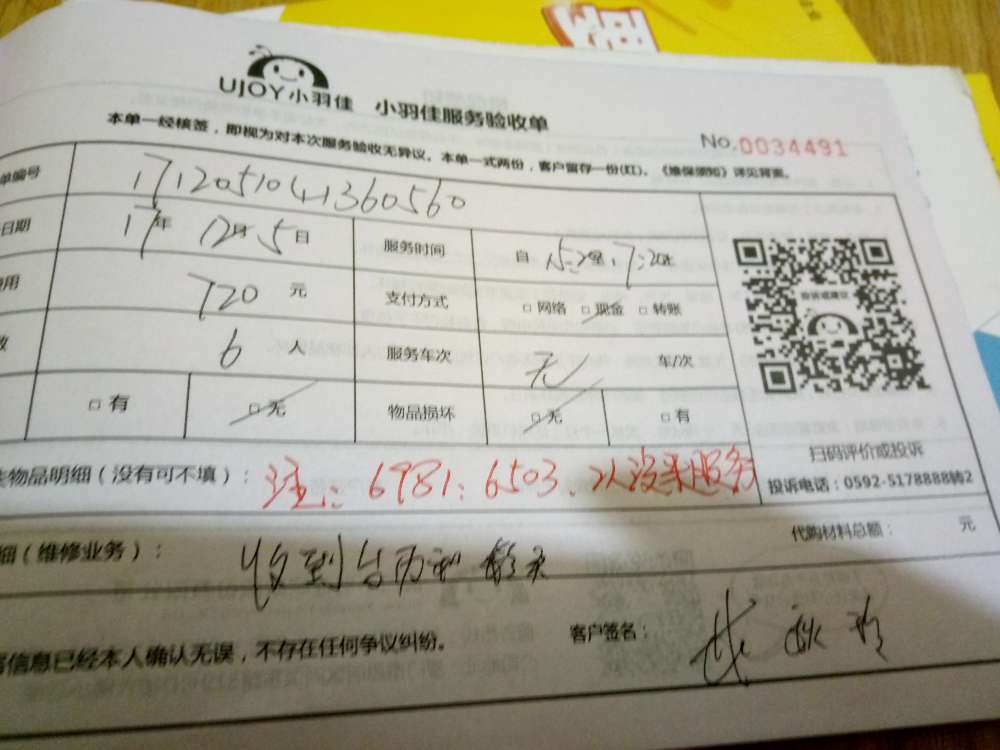 UJOY小羽佳 小羽佳服务验收单
No.0034491
本单一经核签，即视为对本次服务验收无异议。本单一式两份，客户留存一份(红)。《维保须知》详见背面。
单编号 1712051041360560
日期 17年 12月 5日 服务时间 自 至
用 720 元 支付方式 □ 网络 □ 现金 □ 转账
数 6 人 服务车次 无 车/次
□ 有 □ 无 物品损坏 □ 无 □ 有
扫码评价或投诉
投诉电话：0592-5178888转2
物品明细（没有可不填）： 注：6981；6503、以没来服务
代购材料总额： 元
细（维修业务）： 收到台历和
信息已经本人确认无误，不存在任何争议纠纷。 客户签名：